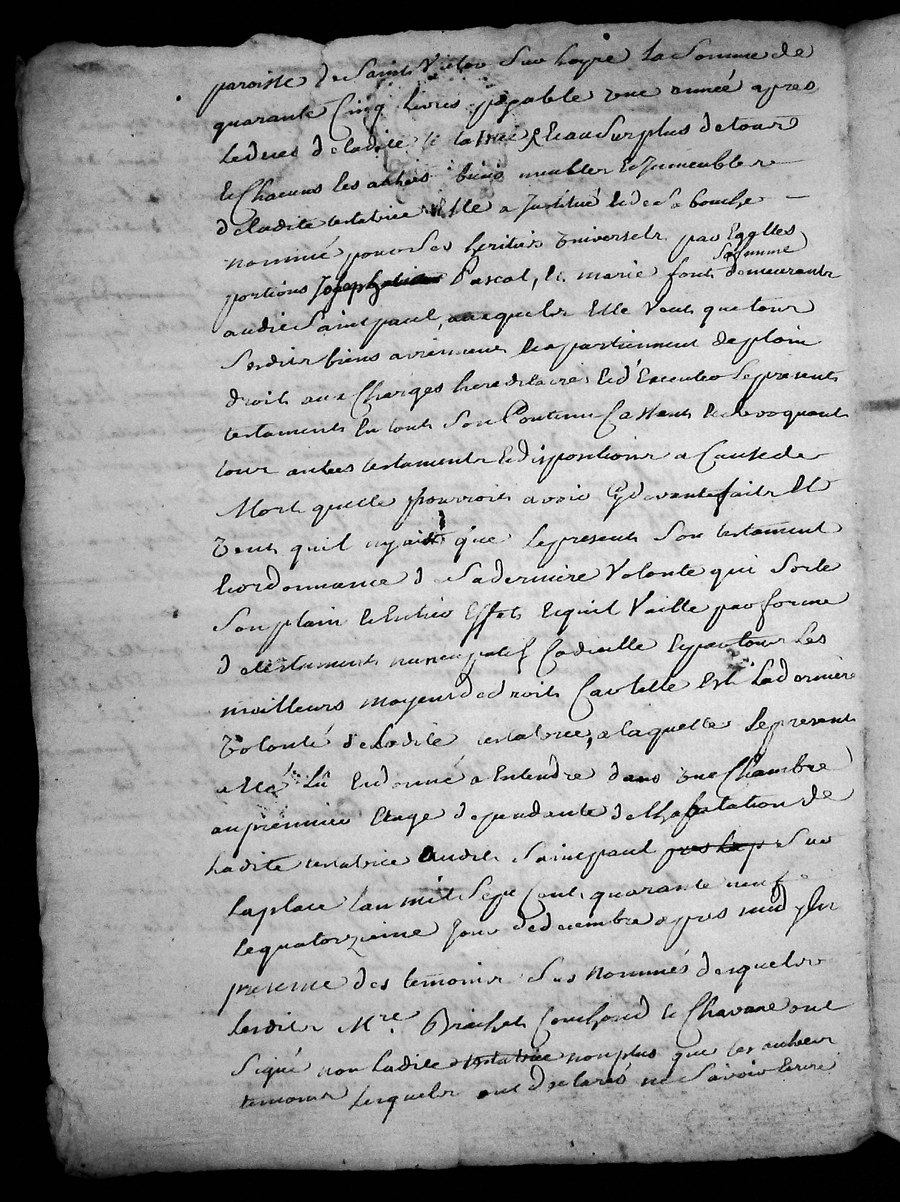 paroisse de Saint Victor Sur Loyre la Somme de
quarante Cinq livres payable une année apres
le deces de ladite testatrice Et au Surplus de tous
Et Chacuns les autres biens meubles Et Immeubles
de ladite testatrice Elle a Institué Et de Sa bouche
nommé pour Ses heritiers Universels par Egalles
portions Pascal, Et marie font Sa femme demeurants
audit Saint paul, auxquels Elle Veut que tous
Sesdits biens aviennent Et apartiennent de plein
droit aux Charges hereditaires Et d'Executer Le present
testament En tout Son Contenu Cassant Et revoquant
tous autres testaments Et dispositions a Cause de
Mort quelle pourroit avoir Cy devant faits Et
Veut quil nyait que Le present Son testament
Et ordonnance de Sa derniere Volonté qui Sorte
Son plain Et Entier Effet Et quil Vaille par forme
de testament nuncupatif Codicille Et par tous Les
meilleurs moyens de droit Car telle Est La derniere
Volonté de Ladite testatrice, a laquelle Le present
a été Lû Et donné a Entendre dans une Chambre
au premier Etage dependante de lhabitation de
Ladite testatrice audit Saint paul Sur
La place Lan mil Sept Cent quarante neuf
Le quatorzieme Jour de decembre apres midy En
presence des temoins Sus Nommés desquels
Lesdits Mre. Brichet Couchoud Et Chavane ont
Signé non Ladite testatrice non plus que les autres
temoins Lesquels ont declarés ne Savoir Ecrire